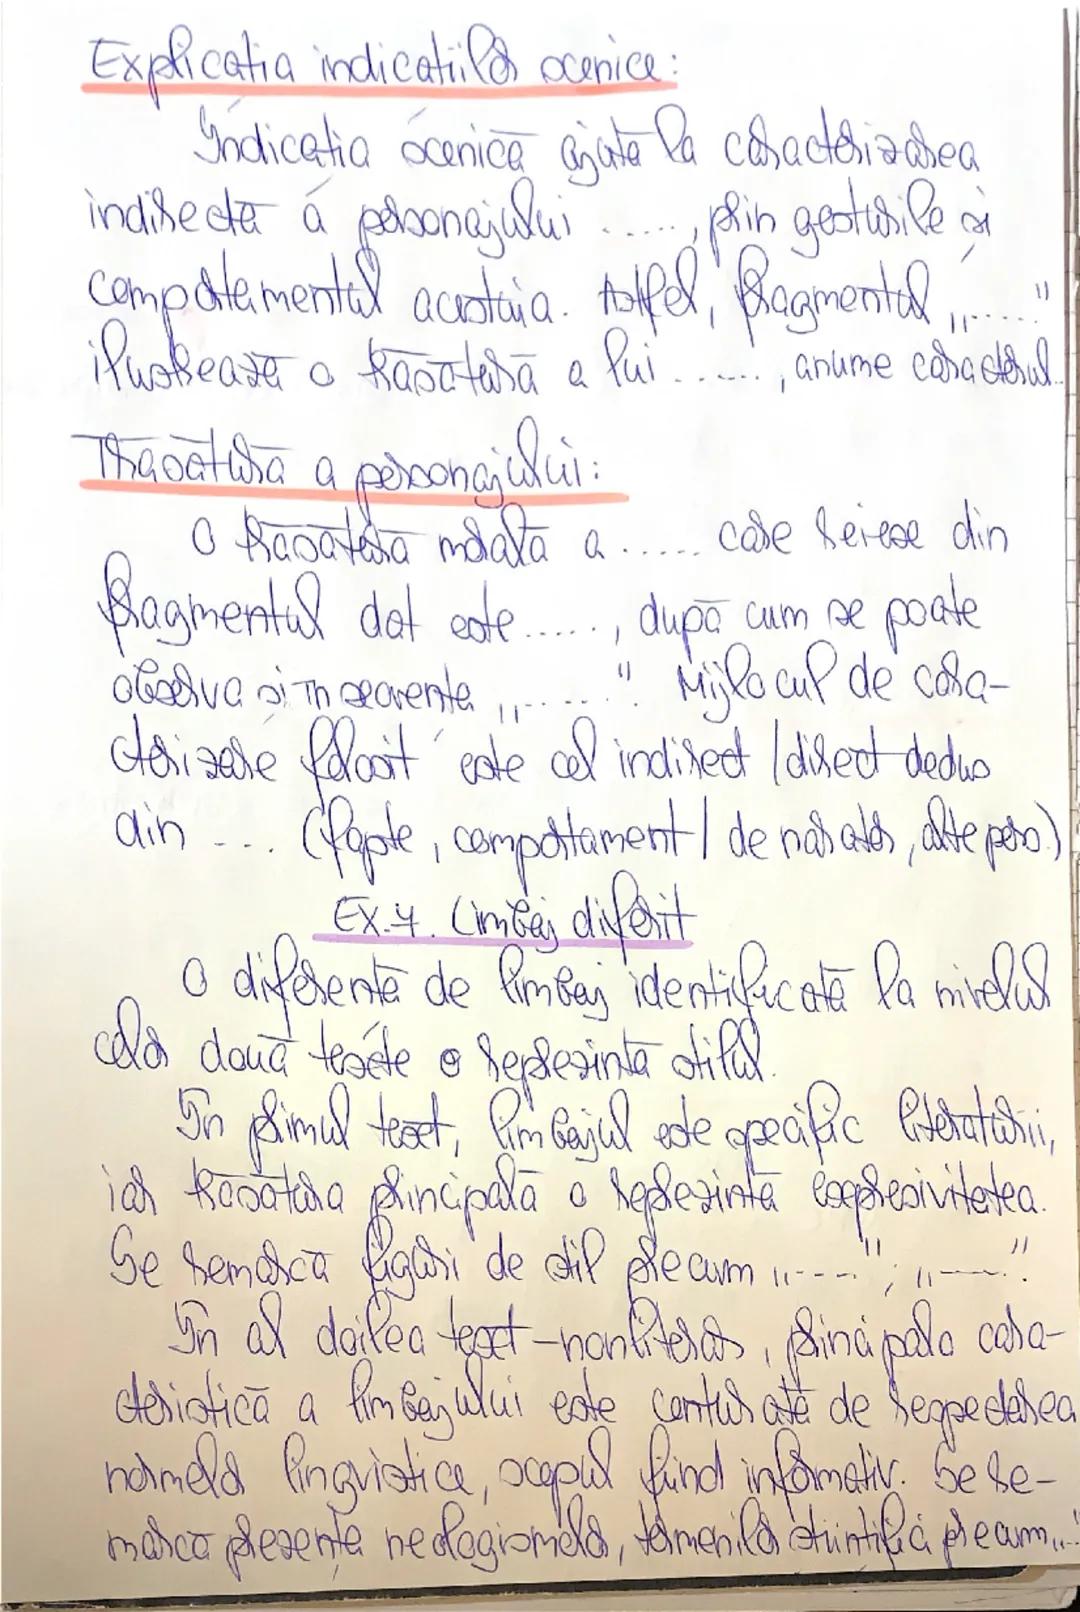 Explicatia indicatiilor scenice:
Indicatia scenică ajută la caracterizarea
indirectă a personajului ....., prin gesturile și
comportamentul acestuia. Astfel, fragmentul „....."
ilustrează o trăsătură a lui ......, anume caracterul...
Trăsătură a personajului:
O trăsătură morală a ..... care reiese din
fragmentul dat este ....., după cum se poate
observa și în secvența „......". Mijlocul de cara-
cterizare folosit este cel indirect / direct dedus
din ... (fapte, comportament / de narator, alte pers.)
EX.4. Limbaj diferit
O diferență de limbaj identificată la nivelul
celor două texte o reprezintă stilul.
În primul text, limbajul este specific literaturii,
iar trăsătura principală o reprezintă expresivitatea.
Se remarcă figuri de stil precum „----"; „----".
În al doilea text-nonliterar, principala cara-
cteristică a limbajului este conturată de respectarea
normelor lingvistice, scopul fiind informativ. Se re-
marcă prezența neologismelor, termenilor științifici precum „..."